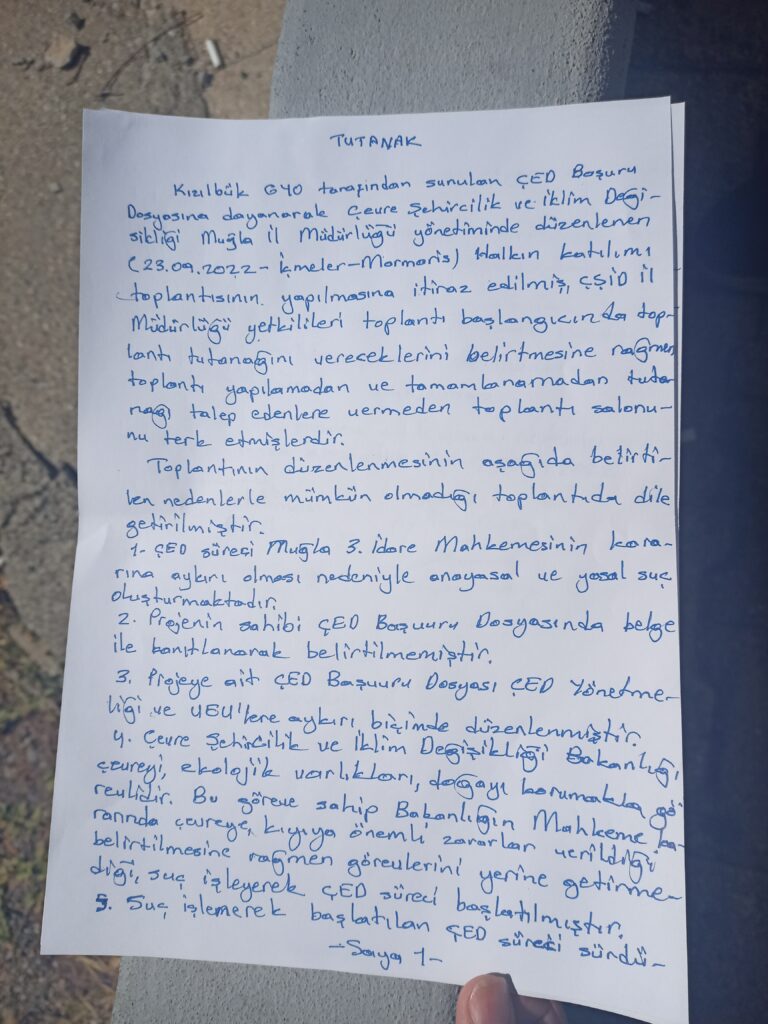 TUTANAK
Kızılbük GYO tarafından sunulan ÇED Başvuru
Dosyasına dayanarak Çevre Şehircilik ve İklim Deği-
şikliği Muğla İl Müdürlüğü yönetiminde düzenlenen
(23.09.2022 - İçmeler-Marmaris) Halkın katılımı
toplantısının yapılmasına itiraz edilmiş, ÇŞİD İl
Müdürlüğü yetkilileri toplantı başlangıcında top-
lantı tutanağını vereceklerini belirtmesine rağmen
toplantı yapılamadan ve tamamlanamadan tuta-
nağı talep edenlere vermeden toplantı salonu-
nu terk etmişlerdir.
Toplantının düzenlenmesinin aşağıda belirti-
len nedenlerle mümkün olmadığı toplantıda dile
getirilmiştir.
1- ÇED süreci Muğla 3. İdare Mahkemesinin kara-
rına aykırı olması nedeniyle anayasal ve yasal suç
oluşturmaktadır.
2. Projenin sahibi ÇED Başvuru Dosyasında belge
ile kanıtlanarak belirtilmemiştir.
3. Projeye ait ÇED Başvuru Dosyası ÇED Yönetme-
liği ve UEU'lere aykırı biçimde düzenlenmiştir.
4. Çevre Şehircilik ve İklim Değişikliği Bakanlığı
çevreyi, ekolojik varlıkları, doğayı korumakla gö
revlidir. Bu göreve sahip Bakanlığın Mahkeme ka-
rarında çevreye, kıyıya önemli zararlar verildiği
belirtilmesine rağmen görevlerini yerine getirme-
diği, suç işleyerek ÇED süreci başlatılmıştır.
5. Suç işlemerek başlatılan ÇED süreci sürdü-
-Saya 1-